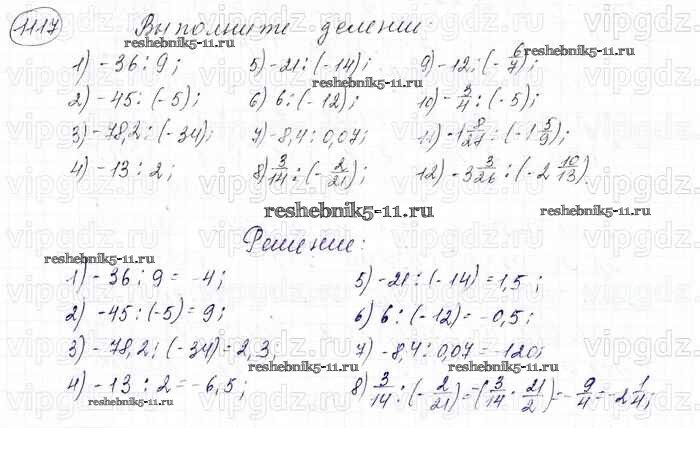 1117 Выполните деление:
1) -36 : 9; 5) -21 : (-14); 9) -12 : (-6/7);
2) -45 : (-5); 6) 6 : (-12); 10) -3/4 : (-5);
3) -78,2 : (-34); 7) -8,4 : 0,07; 11) -1 8/27 : (-1 5/9);
4) -13 : 2; 8) 3/14 : (-2/21); 12) -3 3/26 : (-2 10/13).
Решение:
1) -36 : 9 = -4; 5) -21 : (-14) = 1,5;
2) -45 : (-5) = 9; 6) 6 : (-12) = -0,5;
3) -78,2 : (-34) = 2,3; 7) -8,4 : 0,07 = -120;
4) -13 : 2 = -6,5; 8) 3/14 : (-2/21) = -(3/14 · 21/2) = -9/4 = -2 1/4;
reshebnik5-11.ru
vipgdz.ru